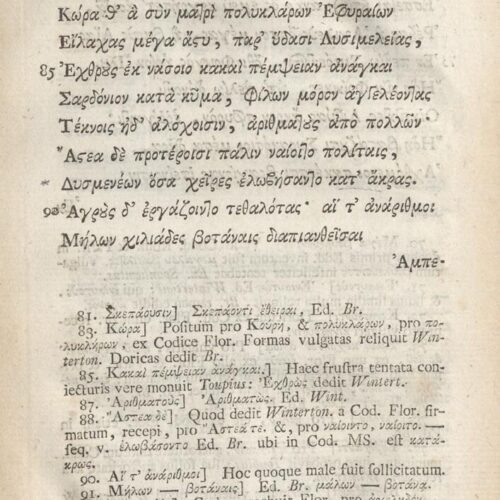 Κώρα θ’ ἃ σὺν ματρὶ πολυκλάρων Ἐφυραίων
Εἴλαχας μέγα ἄςυ, παρ’ ὕδασι Λυσιμελείας,
85 Ἐχθροὺς ἐκ νάσοιο κακαὶ πέμψειαν ἀνάγκαι
Σαρδόνιον κατὰ κῦμα, φίλων μόρον ἀγγελέοντας
Τέκνοις ἠδ’ ἀλόχοισιν, ἀριθματοὺς ἀπὸ πολλῶν·
Ἄςεα δὲ προτέροισι πάλιν ναίοιτο πολίταις,
* Δυσμενέων ὅσα χεῖρες ἐλωβήσαντο κατ’ ἄκρας.
90 Ἀγροὺς δ’ ἐργάζοιντο τεθαλότας· αἵ τ’ ἀνάριθμοι
Μήλων χιλιάδες βοτάναις διαπιανθεῖσαι
Ἀμπε-
81. Σκεπάουσιν] Σκεπάοντι ἔθειραι, Ed. Br.
83. Κώρα] Positum pro Κούρη, & πολυκλάρων, pro πο-
λυκλήρων, ex Codice Flor. Formas vulgatas reliquit Win-
terton. Doricas dedit Br.
85. Κακαὶ πέμψειαν ἀνάγκαι.] Haec frustra tentata con-
iecturis vere monuit Toupius: Ἐχθρὼς dedit Wintert.
87. Ἀριθματοὺς] Ἀριθματώς. Ed. Wint.
88. Ἄστεα δὲ] Quod dedit Winterton. a Cod. Flor. fir-
matum, recepi, pro Ἄστεά τε. &, pro ναίοιντο, ναίοιτο. —
seq. v. ἐλωβάσοντο Ed. Br. ubi in Cod. MS. est κατά-
κρως.
90. Αἵ τ’ ἀνάριθμοι] Hoc quoque male fuit sollicitatum.
91. Μήλων — βοτάναις] Ed. Br. μάλων — βοτάνᾳ.